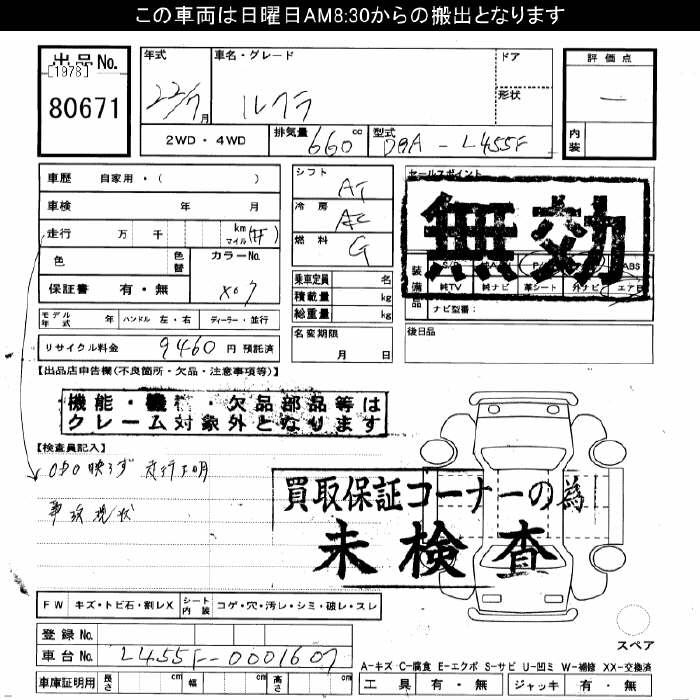 この車両は日曜日AM8:30からの搬出となります
出品No.
[1978]
80671
年式
22/7
月
車名・グレード
ルクラ
ドア
形状
評価点
ー
内装
2WD・4WD
排気量
660
cc
型式
DBA-L455F
車歴 自家用・( )
車検 年 月
走行 万 千 km マイル (不)
色
色替
カラーNo.
X07
保証書 有・無
シフト
AT
冷房
AC
燃料
G
乗車定員 名
積載量 kg
総重量 kg
名変期限
月 日
セールスポイント
無効
装備品
ABS
純TV
純ナビ
革シート
外ナビ
エアB
ナビ型番:
後日品
モデル年式 年
ハンドル 左・右
ディーラー・並行
リサイクル料金 9460 円 預託済
【出品店申告欄(不良箇所・欠品・注意事項等)】
機能・機 ・欠品部品等は
クレーム対象外となります
【検査員記入】
ODO映らず 走行不明
事故現状
買取保証コーナーの為
未検査
FW キズ・トビ石・割レX
シート内装 コゲ・穴・汚レ・シミ・破レ・スレ
登録No.
車台No. L455F-0001607
車庫証明用 長さ cm 幅 cm 高さ cm
スペア
A-キズ C-腐食 E-エクボ S-サビ U-凹ミ W-補修 XX-交換済
工具 有・無
ジャッキ 有・無